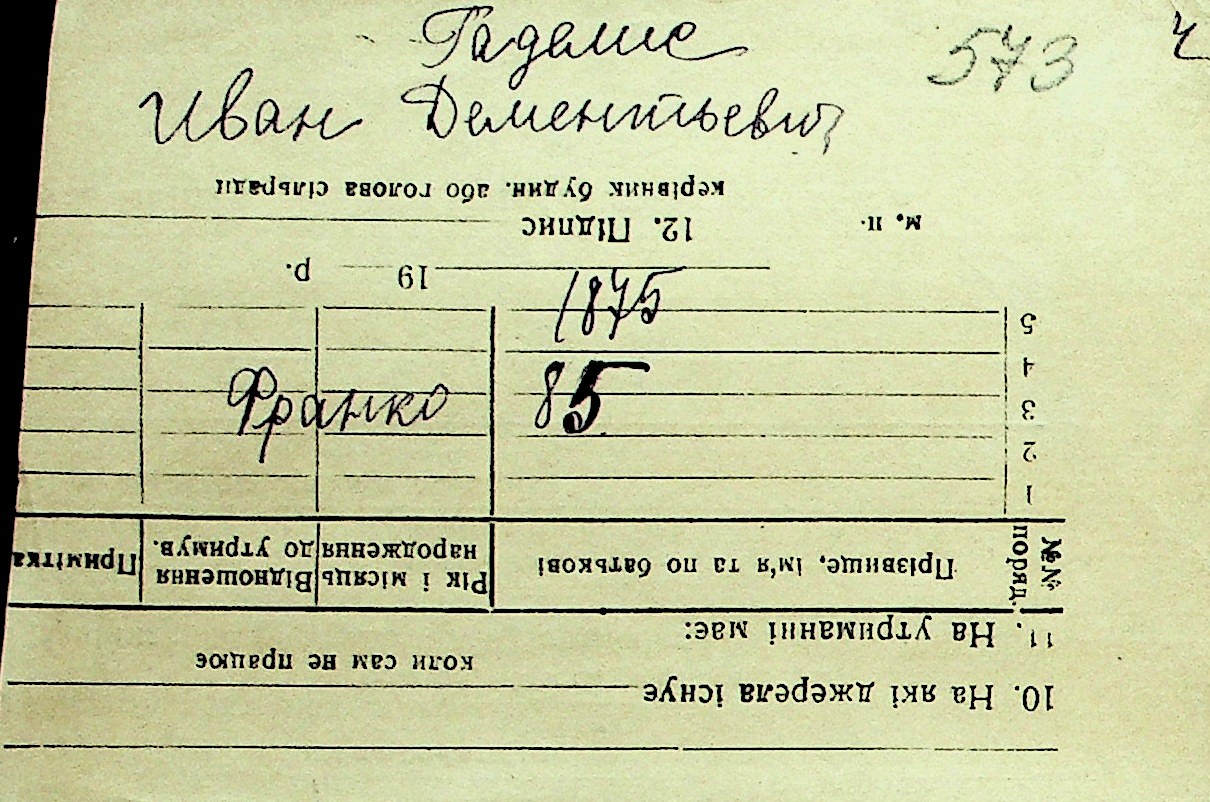 573
Иван Дементьевич
1875
Франко 85
10. На які джерела існує
коли сам не працює
11. На утриманні має:
№№ поряд.
Прізвище, ім'я та по батькові
Рік і місяць народження
Відношення до утримув.
Примітка
1
2
3
4
5
19 р.
м. п.
12. Підпис
керівник будин. або голова сільради